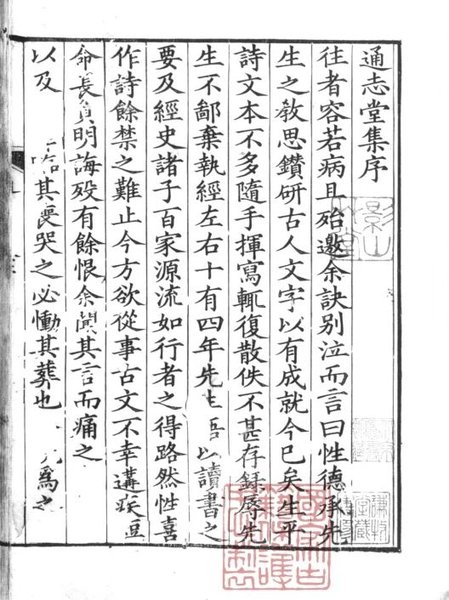 通志堂集序
往者容若病且殆邀余訣別泣而言曰性德承先
生之敎思鑽研古人文字以有成就今已矣生平
詩文本不多隨手揮寫輒復散佚不甚存錄辱先
生不鄙棄執經左右十有四年先生語以讀書之
要及經史諸子百家源流如行者之得路然性喜
作詩餘禁之難止今方欲從事古文不幸遘疾短
命長負明誨歿有餘恨余聞其言而痛之
以及臨其喪哭之必慟其葬也為之